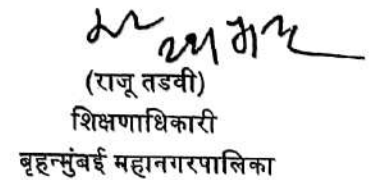 (राजू तडवी)
शिक्षणाधिकारी
बृहन्मुंबई महानगरपालिका